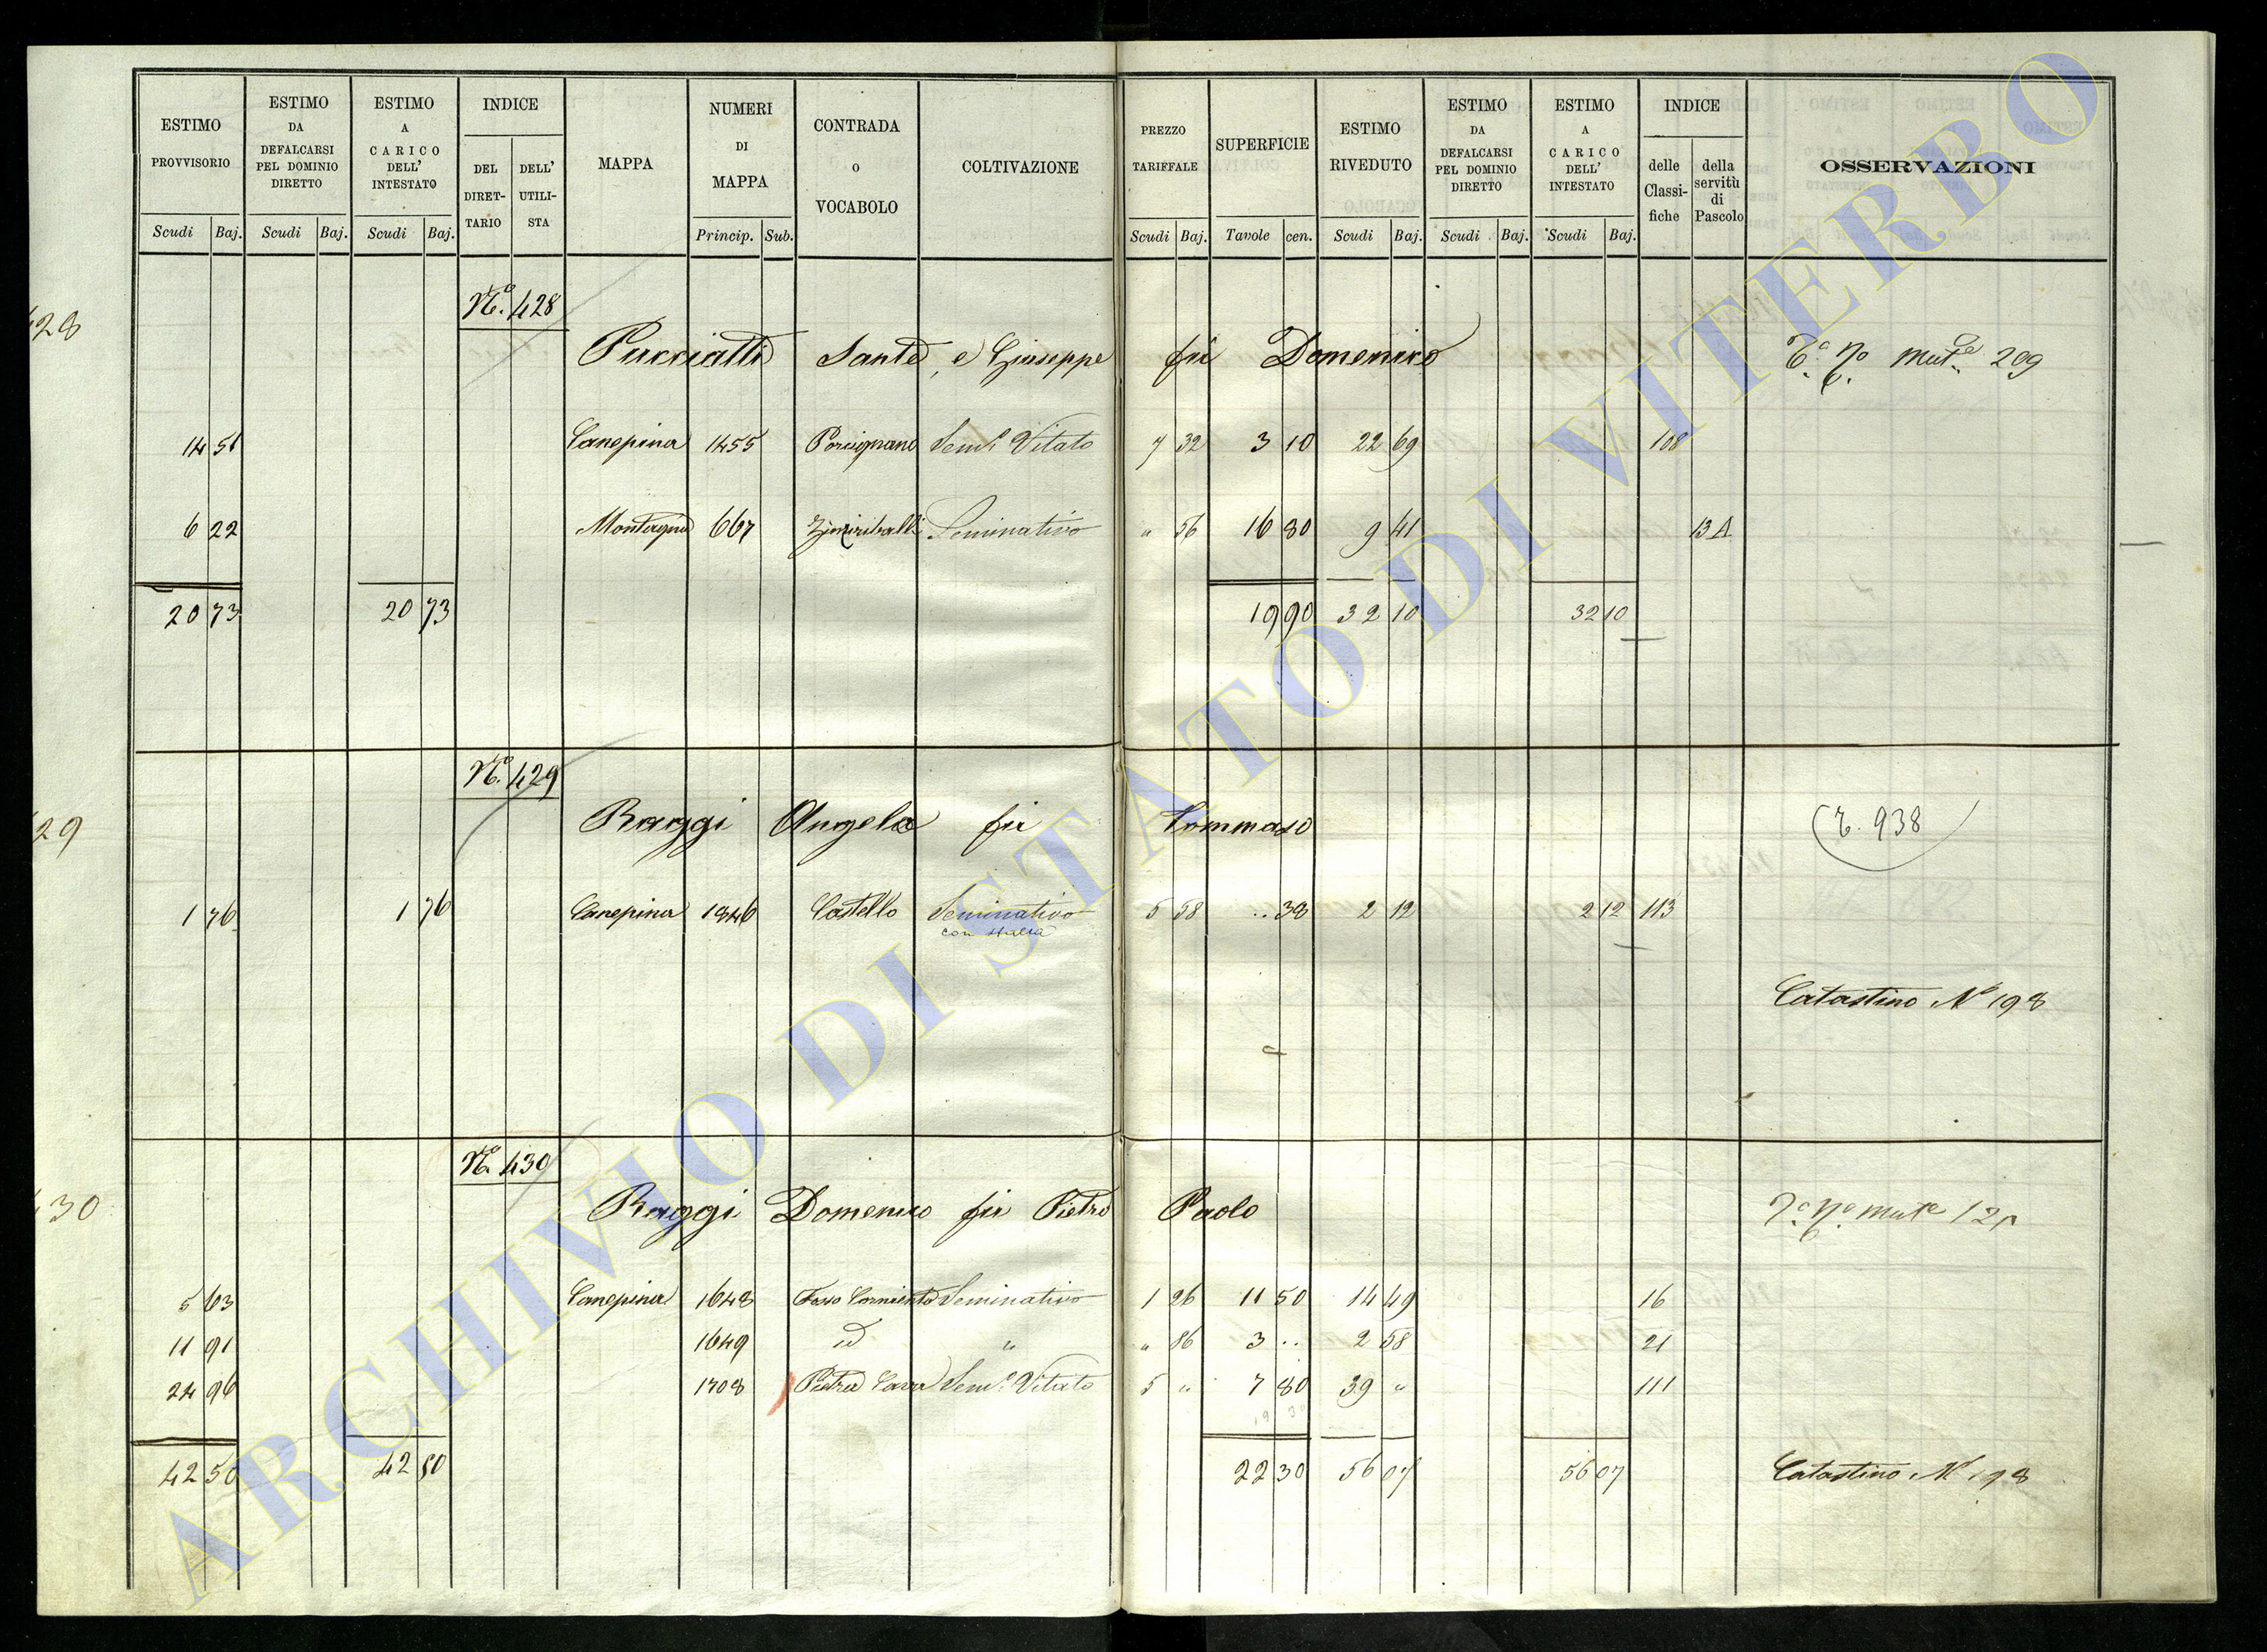 ESTIMO PROVVISORIO | ESTIMO DA DEFALCARSI PEL DOMINIO DIRETTO | ESTIMO A CARICO DELL' INTESTATO | INDICE | MAPPA | NUMERI DI MAPPA | CONTRADA O VOCABOLO | COLTIVAZIONE | PREZZO TARIFFALE | SUPERFICIE | ESTIMO RIVEDUTO | ESTIMO DA DEFALCARSI PEL DOMINIO DIRETTO | ESTIMO A CARICO DELL' INTESTATO | INDICE | OSSERVAZIONI
DEL DIRET-TARIO | DELL' UTILI-STA | delle Classi-fiche | della servitù di Pascolo
Scudi Baj. | Scudi Baj. | Scudi Baj. | Princip. Sub. | Scudi Baj. | Tavole cen. | Scudi Baj. | Scudi Baj. | Scudi Baj.
N.° 428
428 Pucciatti Sante, e Giuseppe fu Domenico mut.e 209
14 51 Canepina 1455 Porcignano Sem.o Vitato 7 32 3 10 22 69 108
6 22 Montagna 667 Seminativo " 56 16 80 9 41 13 A
20 73 20 73 19 90 32 10 32 10
N.° 429
29 Raggi Angela fu Tommaso (T. 938
1 76 1 76 Canepina 1846 Castello Seminativo 5 58 .. 38 2 12 2 12 113
con stalla
Catastino N° 198
N.° 430
30 Raggi Domenico fu Pietro Paolo mut.e
5 63 Canepina 1648 Fosso Seminativo 1 26 11 50 14 49 16
11 91 1649 id " " 86 3 .. 2 58 21
24 96 1708 Pietra Cava Sem.o Vitato 5 " 7 80 39 " 111
42 50 42 50 22 30 56 07 56 07 Catastino N° 198
ARCHIVIO DI STATO DI VITERBO